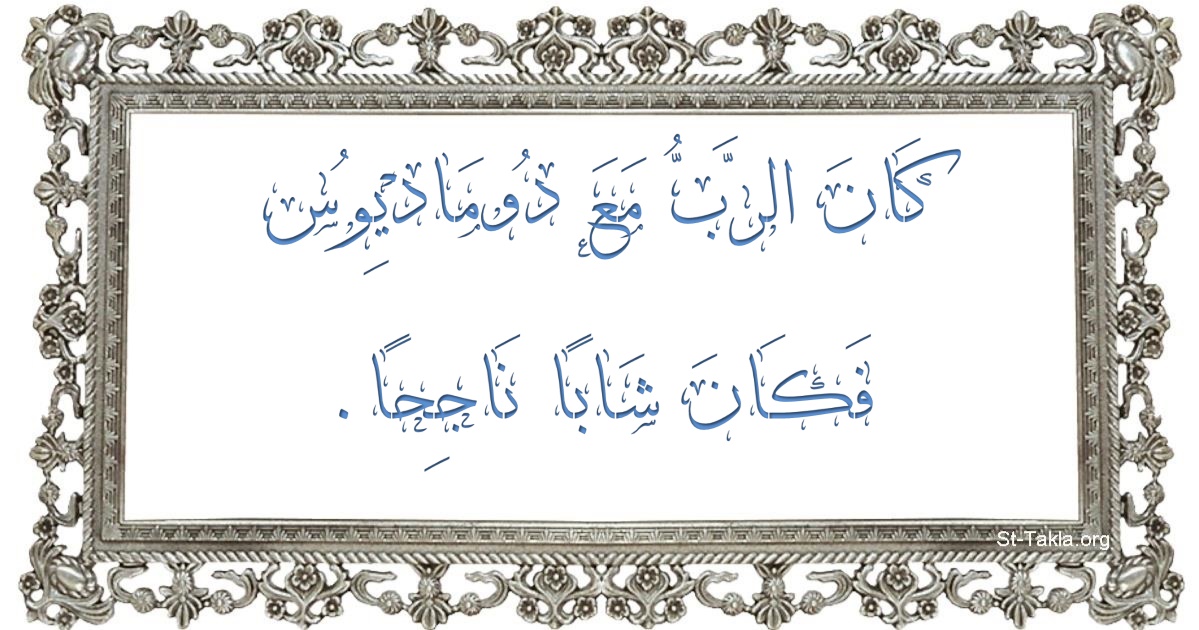 كَانَ الرَّبُّ مَعَ دُومَاديْوِسُ
فَكَانَ شَابًا نَاجِحًا .
St-Takla.org